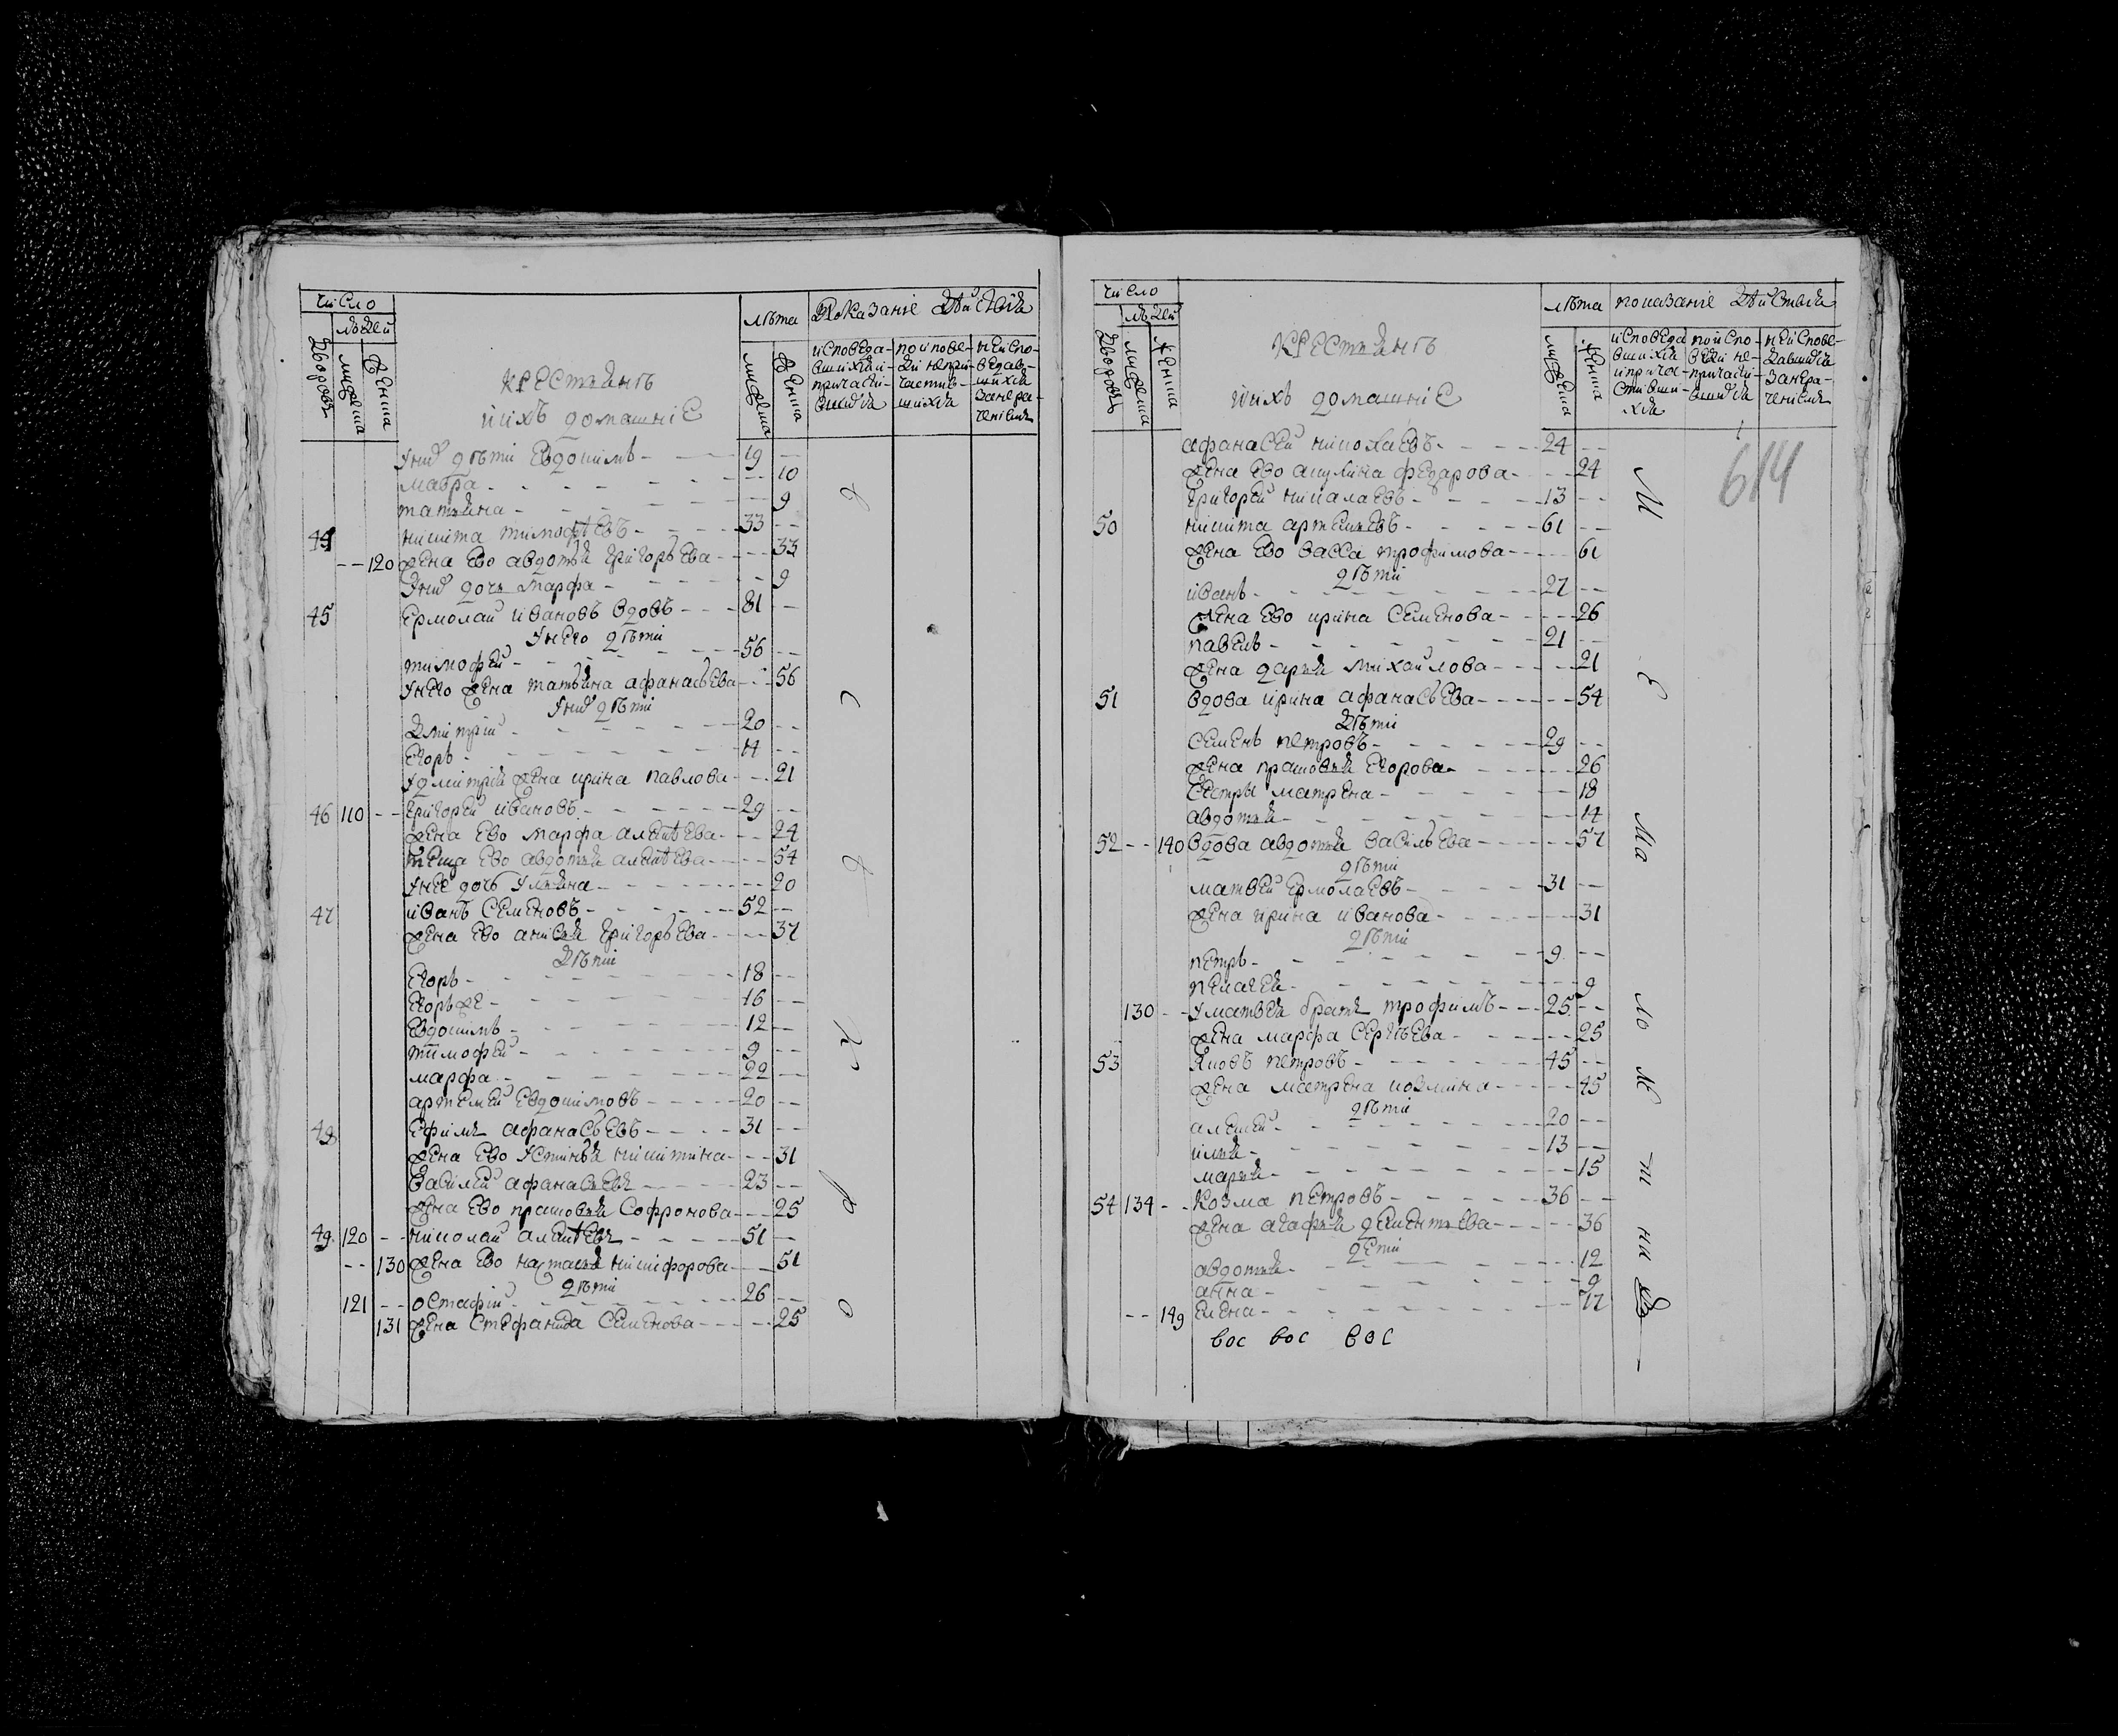 число
людей
лѣта Показаніе дѣиства
дворовъ
мужеска
женска
мужеска
женска
исповеда-
вшихся и
причасти-
вшихся
по испове-
ди непри-
частив-
шихся
неиспо-
ведав-
шихся
крестьянъ
ихъ домашніе
у них дѣти Евдокимъ - 19 --
мавра - -- 10
татьяна - -- 9
44 никита тимофѣевъ - 33 --
-- 120 жена ево авдотья григорьева - -- 33
у них дочь марфа - -- 9
45 ермолаи ивановъ вдовъ - 81 --
у него дѣти
тимофеи - 56 --
у него жена татьяна афанасьева -- 56
у них дѣти
дмитріи - 20 --
егоръ - 14 --
у дмитрія жена ирина павлова -- 21
46 110 -- григореи ивановъ - 29 --
жена ево марфа алексѣева -- 24
теща ево авдотья алексѣева -- 54
у нее дочь ульяна -- 20
47 иванъ семеновъ - 52 --
жена ево анисья григорьева -- 37
дѣти
егоръ - 18 --
егоръ же - 16 --
евдокимъ - 12 --
тимофеи - 9 --
марфа - 22 --
артемеи евдокимовъ - 20 --
48 ефимъ афанасьевъ - 31 --
жена ево устинья никитина -- 31
василеи афанасьевъ - 23 --
жена ево прасковья софронова -- 25
49 120 -- николаи алексѣевъ - 51 --
-- 130 жена ево настасья никифорова -- 51
дѣти
121 -- остафіи - 26 --
131 жена стефанида семенова -- 25
число
людей
лѣта показаніе дѣиства
дворовъ
мужеска
женска
мужеска
женска
исповеда
вшихся
и прича-
стивши-
хся
по испо-
веди не-
причасти-
вшихся
неиспове-
давшихся
614
крестьянъ
ихъ домашніе
афанасеи николаевъ - 24 --
жена ево акулина федарова - -- 24
григореи никалаевъ - 13 --
50 никита артемьевъ - 61 --
жена ево васса трофимова -- 61
дѣти
иванъ - 27 --
жена ево ирина семенова -- 26
павелъ - 21 --
жена дарья михаилова -- 21
51 вдова ирина афанасьева -- 54
дѣти
семенъ петровъ - 29 --
жена прасковья егорова -- 26
сестры матрена -- 18
авдотья -- 14
52 -- 140 вдова авдотья васильева -- 57
дѣти
матвеи ермолаевъ - 31 --
жена ирина иванова -- 31
дѣти
петръ - 9 --
пелагея - -- 9
130 -- у матвея братъ трофимъ - 25 --
жена марфа сергѣева -- 25
53 яковъ петровъ - 45 --
жена матрена козмина -- 45
дѣти
алексеи - 20 --
илья - 13 --
марья - -- 15
54 134 -- козма петровъ - 36 --
жена агафья дементьева -- 36
дети
авдотья - -- 12
анна - -- 9
-- 149 елена - -- 17
вос вос вос